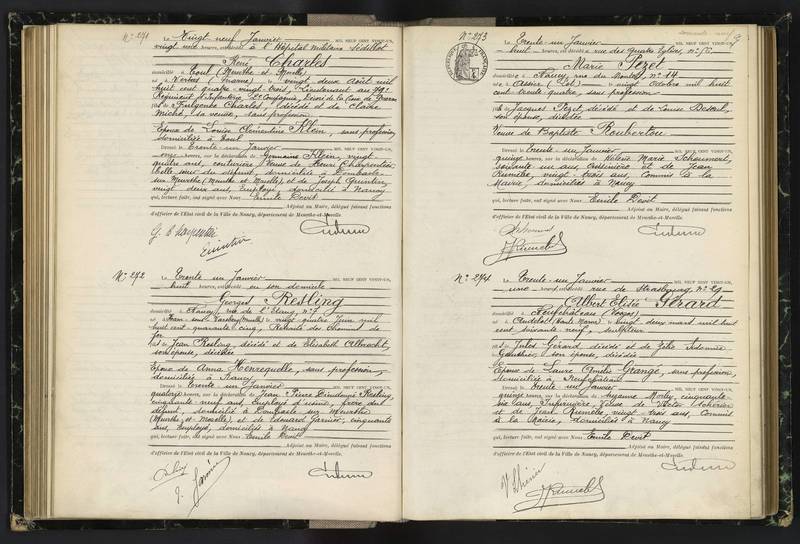 N° 271
Le Vingt neuf Janvier MIL NEUF CENT VINGT-UN,
vingt une heures, est décédé à l'Hôpital Militaire Sédillot
René Charles
domicilié à Toul (Meurthe et Moselle)
né à Vertus (Marne) le vingt deux Août mil
huit cent quatre vingt trois, Lieutenant au
Régiment d'Infanterie
fils de Fulgence Charles, décédé et de Claire
Michel, sa veuve, sans profession
Époux de Louise Clémentine Klein, sans profession,
domiciliée à Toul
Dressé le Trente un Janvier MIL NEUF CENT VINGT-UN,
onze heures, sur la déclaration de Germaine Klein, vingt
quatre ans, couturière, Veuve de Henri Charpentier
belle sœur du défunt, domiciliée à Dombasle
sur Meurthe (Meurthe et Moselle) et de Joseph Quintin,
vingt deux ans, Employé, domicilié à Nancy
qui, lecture faite, ont signé avec Nous Emile Devit
Adjoint au Maire, délégué faisant fonctions
d'officier de l'Etat civil de la Ville de Nancy, département de Meurthe-et-Moselle.
N° 272
Le Trente un Janvier MIL NEUF CENT VINGT-UN,
huit heures, est décédé en son domicile
Georges Resling
domicilié à Nancy, rue de l'Etang, n° 7
né à (Moselle) le vingt quatre Juin mil
huit cent quarante cinq, Retraité des Chemins de
fer
fils de Jean Resling décédé et de Elisabeth Albrecht,
son épouse, décédée
Époux de Anna Henrequelle, sans profession,
domiciliée à Nancy
Dressé le Trente un Janvier MIL NEUF CENT VINGT-UN,
quatorze heures, sur la déclaration de Jean Pierre Resling,
cinquante neuf ans, Employé d'usine, frère du
défunt, domicilié à Dombasle sur Meurthe
(Meurthe et Moselle), et de Edouard Garnier, cinquante
ans, Employé, domicilié à Nancy
qui, lecture faite, ont signé avec Nous Emile Devit
Adjoint au Maire, délégué faisant fonctions
d'officier de l'Etat civil de la Ville de Nancy, département de Meurthe-et-Moselle.
N° 273
Le Trente un Janvier MIL NEUF CENT VINGT-UN,
huit heures, est décédée rue des Quatre Eglises, n°
Marie Pezet
domiciliée à Nancy, rue du Montet, n° 14
née à Assier (Lot) le vingt Octobre mil huit
cent trente quatre, sans profession
fille de Jacques Pezet, décédé et de Louise
son épouse, décédée
Veuve de Baptiste Roubertou
Dressé le Trente un Janvier MIL NEUF CENT VINGT-UN,
quinze heures, sur la déclaration de Hélène Marie
soixante un ans, et de Jean
Rumelhe, vingt trois ans, Commis à la
Mairie, domiciliés à Nancy
qui, lecture faite, ont signé avec Nous Emile Devit
Adjoint au Maire, délégué faisant fonctions
d'officier de l'Etat civil de la Ville de Nancy, département de Meurthe-et-Moselle.
N° 274
Le Trente un Janvier MIL NEUF CENT VINGT-UN,
une heure, est décédé rue de Strasbourg, n° 29
Albert Elisée Gérard
domicilié à Neufchâteau (Vosges)
né à (Haute Marne) le vingt deux mars mil huit
cent soixante neuf, sculpteur
fils de Jules Gérard décédé et de Zélie Sidonie
Gauthier, son épouse, décédée
Époux de Laure Amélie Grange, sans profession,
domiciliée à Neufchâteau
Dressé le Trente un Janvier MIL NEUF CENT VINGT-UN,
quinze heures, sur la déclaration de Suzanne Morly, cinquante
six ans, Infirmière, Veuve de Victor
et de Jean Rumelhe, vingt trois ans, Commis
à la Mairie, domiciliés à Nancy
qui, lecture faite, ont signé avec Nous Emile Devit
Adjoint au Maire, délégué faisant fonctions
d'officier de l'Etat civil de la Ville de Nancy, département de Meurthe-et-Moselle.